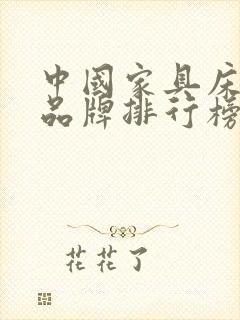 中國家具床
品牌排行榜
花花了